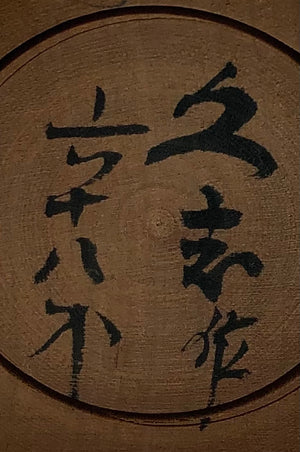 久志作
六十八才